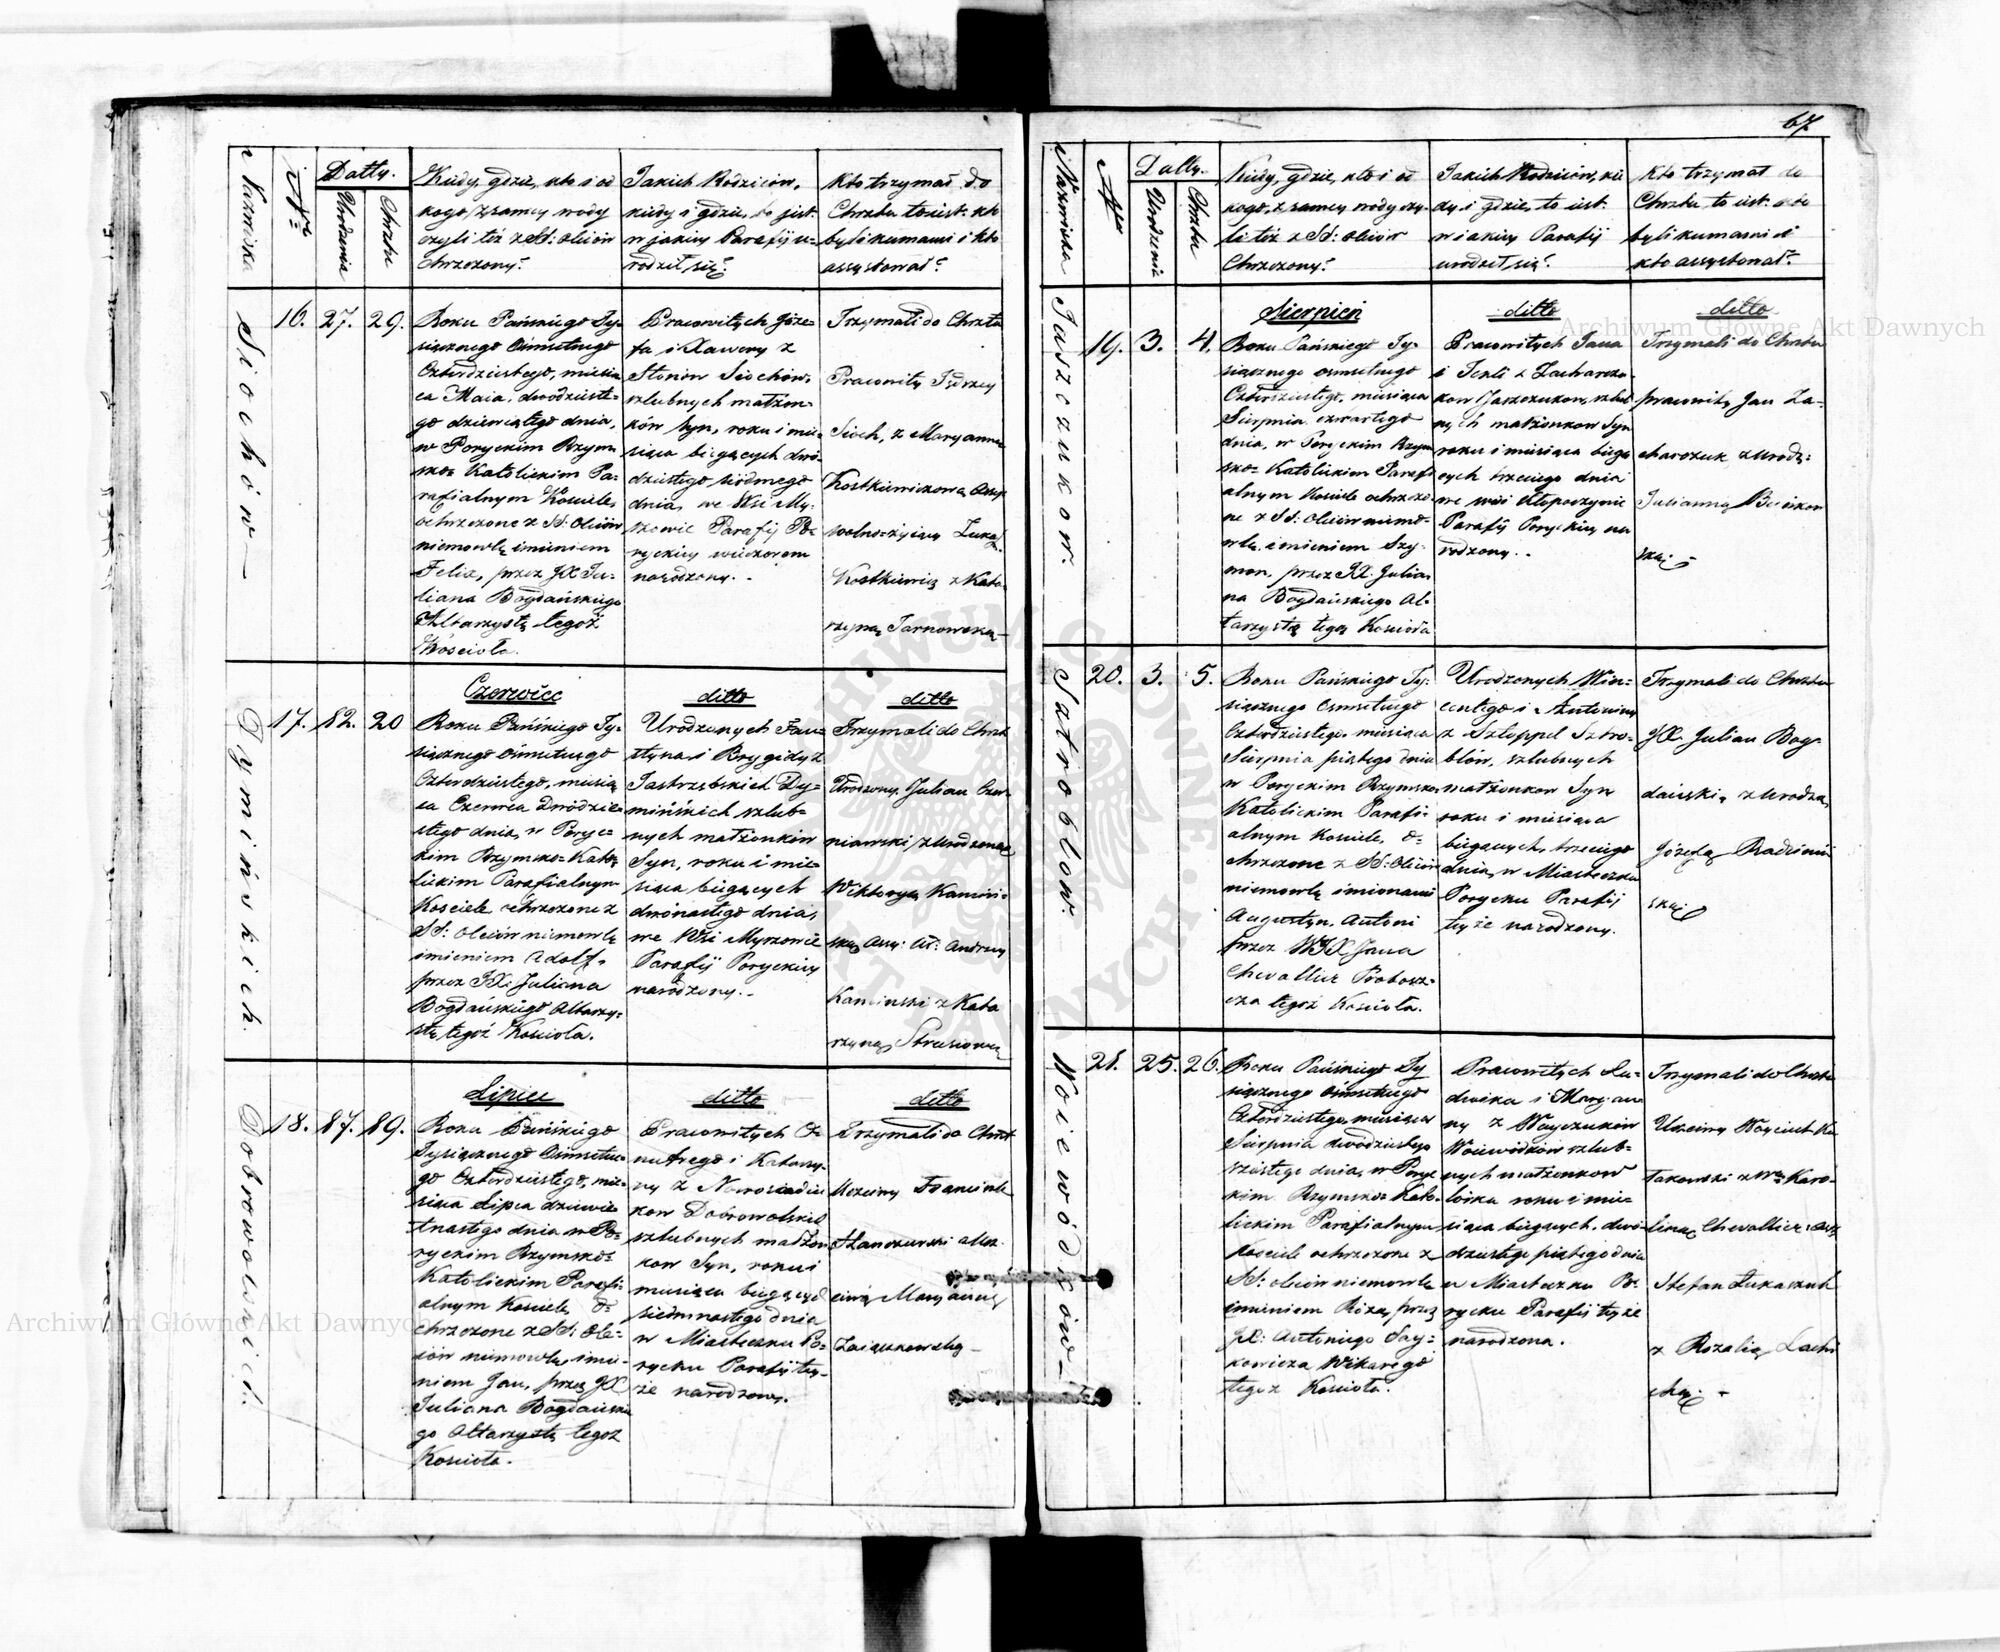 67
Nazwiska
Nro
Datty.
Urodzenia
Chrztu
Kiedy, gdzie, kto i od
kogo, z samey wody
czyli też z SS: Oleiów
Chrzczony?
Jakich Rodziców,
kiedy i gdzie, to jest.
w jakiey Parafij u-
rodził się?
Kto trzymał do
Chrztu to iest. kto
byli kumami i kto
assystował?
Siochów
16.
27.
29.
Roku Pańskiego Ty-
siącznego Ośmsetnego
Czterdziestego, miesią
ca Maia, dwódzieste-
go dziewiątego dnia,
w Poryckim Rzym
sko= Katolickim Pa-
rafialnym Kosciele,
ochrzczone z SS: Oleiów
niemowlę imieniem
Felix, przez JX Ju-
liana Bogdańskiego
Altarzystę tegoż
Kościoła.
Pracowitych Józe-
fa i Xawery z
Słoniow Siochów,
szlubnych małżon-
ków Syn, roku i mie-
siąca bieżących dwó-
dziestego siódmego
dnia, we Wsi My-
szowie Parafij Po-
ryckiey wieczorem
narodzony.
Trzymali do Chrztu
Pracowity Jędrzey
Sioch, z Maryanną
Kostkiewiczową Assys
wolno-żyiący Łukasz
Kostkiewicz z Kata-
rzyną Tarnowską
Dymińskich.
17.
12.
20
Czerwiec
Roku Pańskiego Ty-
siącznego Ośmsetnego
Czterdziestego, miesią
ca Czerwca Dwódzie-
stego dnia, w Poryc-
kim Rzymsko= Kato-
lickim Parafialnym
Kosciele ochrzczone z
SS: Oleiów niemowlę
imieniem Adolf,
przez JX: Juliana
Bogdańskiego Altarzy-
stę tegoż Kościoła.
ditto
Urodzonych Fau-
styna i Brygidy z
Jastrzębskich Dy-
mińskich szlub-
nych małżonków
Syn, roku i mie-
siąca bieżących
dwónastego dnia,
we Wsi Myszowie
Parafij Poryckiey
narodzony.
ditto
Trzymali do Chrzt
Urodzony Julian Czer-
niawski, z Urodzoną
Wiktoryą Kamiń-
ską Assy: Ur: Andrzey
Kaminski z Kata
rzyną Strusiową
Dobrowolskich.
18.
17.
19.
Lipiec
Roku Pańskiego
Tysiącznego Ośmsetne-
go Czterdziestego, mie-
siąca Lipca dziewie-
tnastego dnia w Po-
ryckim Rzymsko=
Katolickim Parafi-
alnym Kosciele, o-
chrzczone z SS: Ole-
iów niemowlę imie-
niem Jan, przez JX
Juliana Bogdańskie
go Altarzystę tegoż
Kościoła.
ditto
Pracowitych O-
nufrego i Katarzy-
ny z Nowosiadiu
kow Dobrowolskich
szlubnych małżon
kow Syn, roku i
miesiąca bieżących
siedmnastego dnia
w Miasteczku Po-
rycku Parafij tey-
że narodzony.
ditto
Trzymali do Chrzt
Uczciwy Franciszek
z Ucz-
ciwą Maryanną
Zaiączkowską
Nazwiska
Nro
Datty.
Urodzenia
Chrztu
Kiedy, gdzie, kto i od
kogo, z samey wody czy-
li też z SS: Oleiów
Chrzczony?
Jakich Rodziców, kie
dy i gdzie, to iest.
w iakiey Parafij
urodził się?
Kto trzymał do
Chrztu, to iest. kto
byli kumami i
kto assystował?
Jaszczukow.
19.
3.
4.
Sierpień
Roku Pańskiego Ty-
siącznego osmsetnego
Czterdziestego, miesiąca
Sierpnia czwartego
dnia, w Poryckim Rzym
sko= Katolickim Parafi
alnym Kosciele ochrzczo-
ne z SS: Oleiów niemo-
wlę imieniem Szy-
mon, przez JX. Julia-
na Bogdańskiego Al-
tarzystę tegoż Kościoła
ditto
Pracowitych Jana
i Tekli z Zacharczu-
kow Jaszczukow, szlub
nych małżonkow Syn
roku i miesiąca bieżą
cych trzeciego dnia
we wsi Kłopoczynie
Parafij Poryckiey na
rodzony.
ditto
Trzymali do Chrztu
pracowity Jan Za-
charczuk z Urodz:
Julianną
ską
Sztroblow.
20.
3.
5.
Roku Pańskiego Ty-
siącznego Osmsetnego
Czterdziestego, miesiąca
Sierpnia piątego dnia
w Poryckim Rzymsko
Katolickim Parafi-
alnym Kosciele, o-
chrzczone z SS: Oleiów
niemowlę imionami
Augustyn, Antoni
przez WJX Jana
Chevallier Probosz-
cza tegoż Kościoła.
Urodzonych Win-
centego i Antoniny
z Sztoppel Sztro-
blów, szlubnych
małżonkow Syn
roku i miesiąca
bieżących, trzeciego
dnia, w Miasteczku
Porycku Parafij
teyże narodzony.
Trzymali do Chrztu
JX. Julian Bog-
dański, z Urodzą
Józefą Radzimiń
ską
Woiewódków
21.
25.
26.
Roku Pańskiego Ty
siącznego Osmsetnego
Czterdziestego, miesiąca
Sierpnia dwódziestego
szóstego dnia, w Poryc
kim Rzymsko= Kato-
lickim Parafialnym
Kosciele ochrzczone z
SS: Oleiów niemowlę
imieniem Róża, przez
JX: Antoniego Say-
kowicza Wikarego
tegoż Kościoła.
Pracowitych Lu-
dwika i Maryan
ny z Wayczuków
Woiewódków szlub-
nych małżonkow
Córka roku i mie
siąca bieżących, dwó
dziestego piątego dnia
w Miasteczku Po-
rycku Parafij teyże
narodzona.
Trzymali do Chrztu
Uczciwy Woyciech Ku
łakowski z Wą Karo-
liną Chevallier: Assy
Stefan Łukaszuk
z Rozalią
Archiwum Główne Akt Dawnych
Archiwum Główne Akt Dawnych